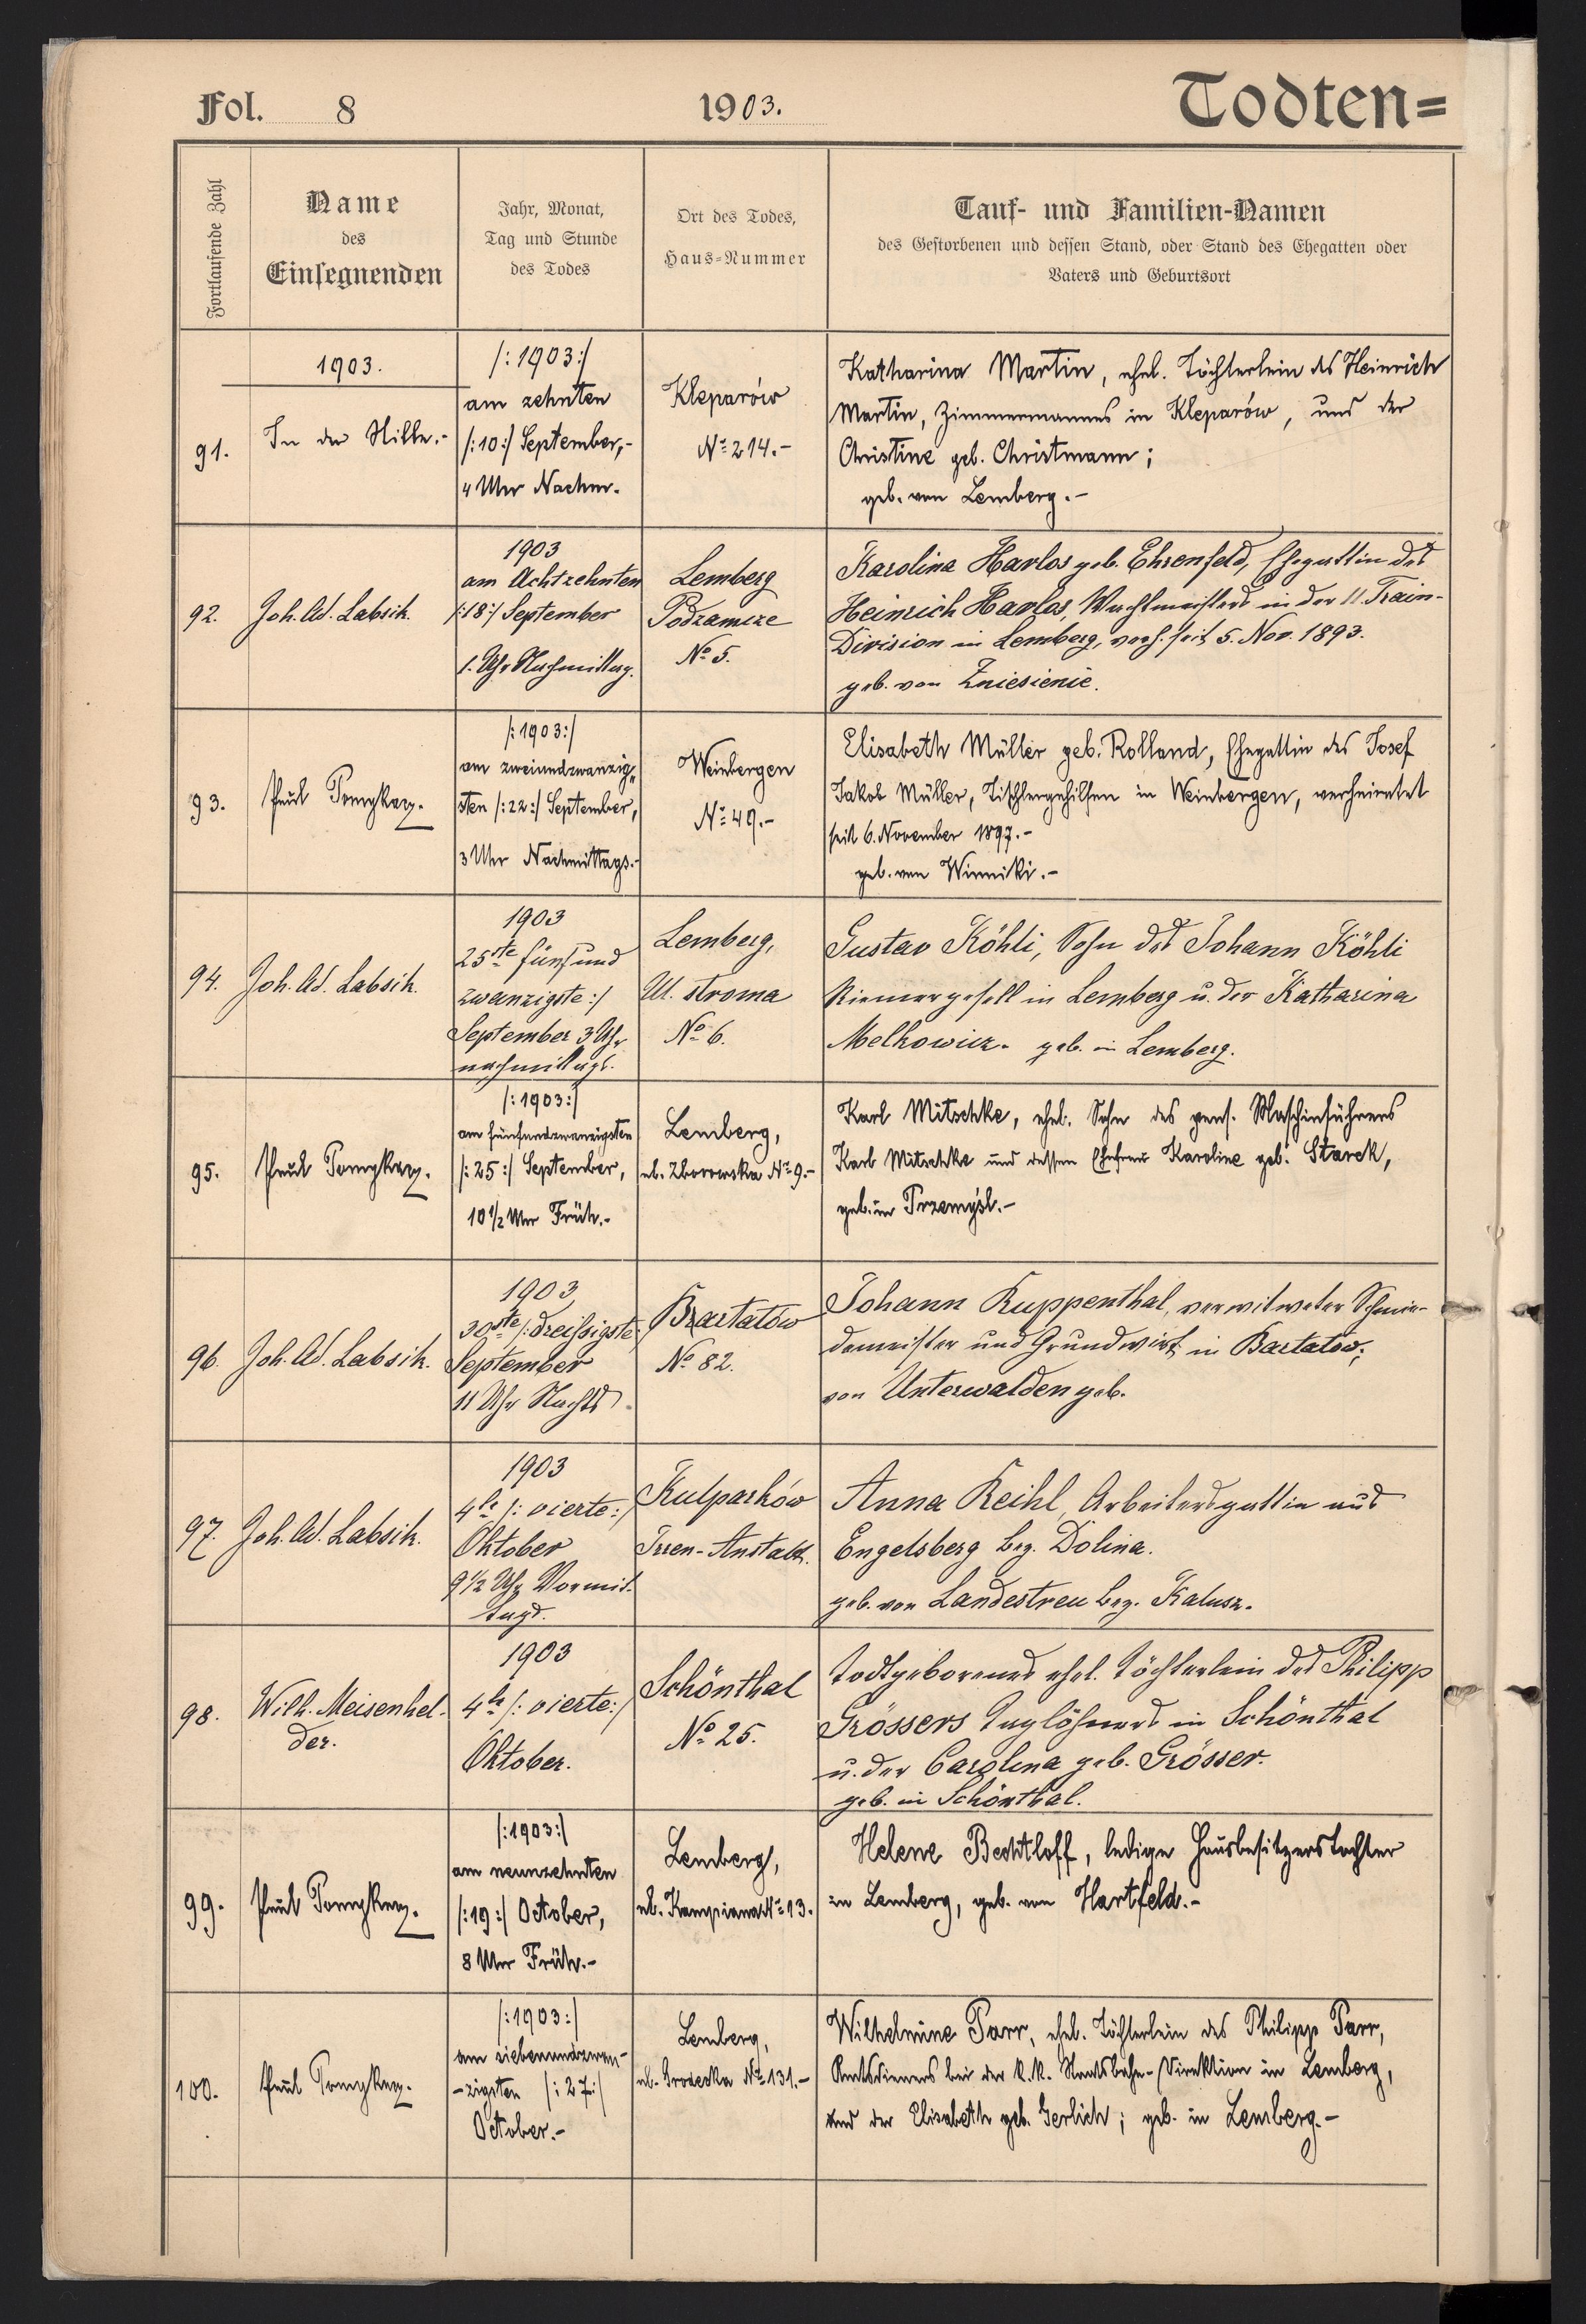 Fol. 8
1903.
Todten=
Fortlaufende Zahl
Name
des
Einsegnenden
Jahr, Monat,
Tag und Stunde
des Todes
Ort des Todes,
Haus-Nummer
Tauf- und Familien-Namen
des Gestorbenen und dessen Stand, oder Stand des Ehegatten oder
Vaters und Geburtsort
91.
1903.
In der Stille.-
/:1903:/
am zehnten
/:10:/ September,-
4 Uhr Nachm.
Kleparów
No 214.-
Katharina Martin, ehel. Töchterlein des Heinrich
Martin, Zimmermannes in Kleparów, und der
Christine geb. Christmann;
geb. von Lemberg.-
92.
Joh. Ad. Labsik.
1903
am Achtzehnten
/:18:/ September
1. Uhr Nachmittag.
Lemberg
Podzamcze
No 5.
Karolina Harlos geb. Ehrenfeld, Ehegattin des
Heinrich Harlos, Wachtmeisters in der 11. Train-
Division in Lemberg, verh. seit 5. Nov. 1893.
geb. von Zniesienie.
93.
Paul
/:1903:/
am zweiundzwanzig-
sten /:22:/ September,
3 Uhr Nachmittags.-
Weinbergen
No 49.-
Elisabeth Müller geb. Rolland, Ehegattin des Josef
Jakob Müller, Tischlergehilfen in Weinbergen, verheiratet
seit 6. November 1897.-
geb. von Winniki.-
94.
Joh. Ad. Labsik.
1903
25ste fünfund
zwanzigste:/
September 3 Uhr
nachmittags.
Lemberg,
Ul. stroma
No 6.
Gustav Köhli, Sohn des Johann Köhli
Riemergesell in Lemberg u. der Katharina
Melkowicz. geb. in Lemberg.
95.
Paul
/:1903:/
am fünfundzwanzigsten
/:25:/ September,
10 1/2 Uhr Früh.-
Lemberg,
ul. Zborowska No 9.-
Karl Mitschke, ehel. Sohn des pens. Maschinführers
Karl Mitschke und dessen Ehefrau Karoline geb. Starck,
geb. in Przemyśl.-
96.
Joh. Ad. Labsik.
1903
30ste /:dreißigste:/
September
11 Uhr Nachts
Bartatów
No 82.
Johann Ruppenthal, verwitweter Schmie-
demeister und Grundwirt in Bartatów;
von Unterwalden geb.
97.
Joh. Ad. Labsik.
1903
4te /:vierte:/
Oktober
9 1/2 Uhr Vormit-
tags.
Kulparków
Irren-Anstalt.
Anna Keihl, Arbeitersgattin aus
Engelsberg bez. Dolina.
geb. von Landestreu bez. Kalusz.
98.
Wilh. Meisenhel-
der.
1903
4te /:vierte:/
Oktober.
Schönthal
No 25.
Todtgeborenes ehel. Töchterlein des Philipp
Grössers Taglöhners in Schönthal
u. der Carolina geb. Grösser.
geb. in Schönthal.
99.
Paul
/:1903:/
am neunzehnten
/:19:/ October,
8 Uhr Früh.-
Lemberg,
ul. Kampiana No 13.
Helene Bechtloff, ledige Hausbesitzerstochter
in Lemberg, geb. von Hartfeld.-
100.
Paul
/:1903:/
am siebenundzwan-
-zigsten /:27:/
October.-
Lemberg,
ul. Grodecka No 131.-
Wilhelmine Parr, ehel. Töchterlein des Philipp Parr,
Amtsdieners bei der k.k. Staatsbahn-Direktion in Lemberg,
und der Elisabeth geb. Gerlich; geb. in Lemberg.-